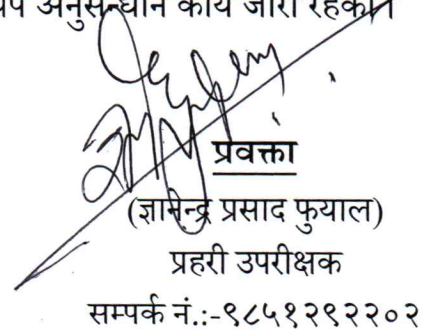 थप अनुसन्धान कार्य जारी रहेको।
प्रवक्ता
(ज्ञानेन्द्र प्रसाद फुयाल)
प्रहरी उपरीक्षक
सम्पर्क नं.:-९८५१२९२२०२